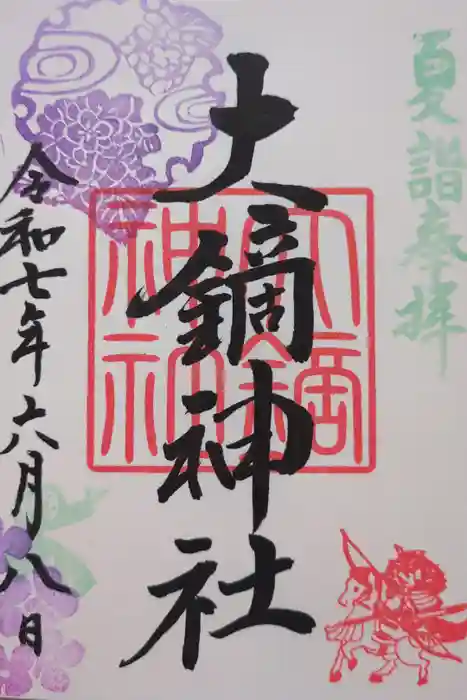 夏詣奉拝
大鏑神社
大鏑神社
令和七年六月八日